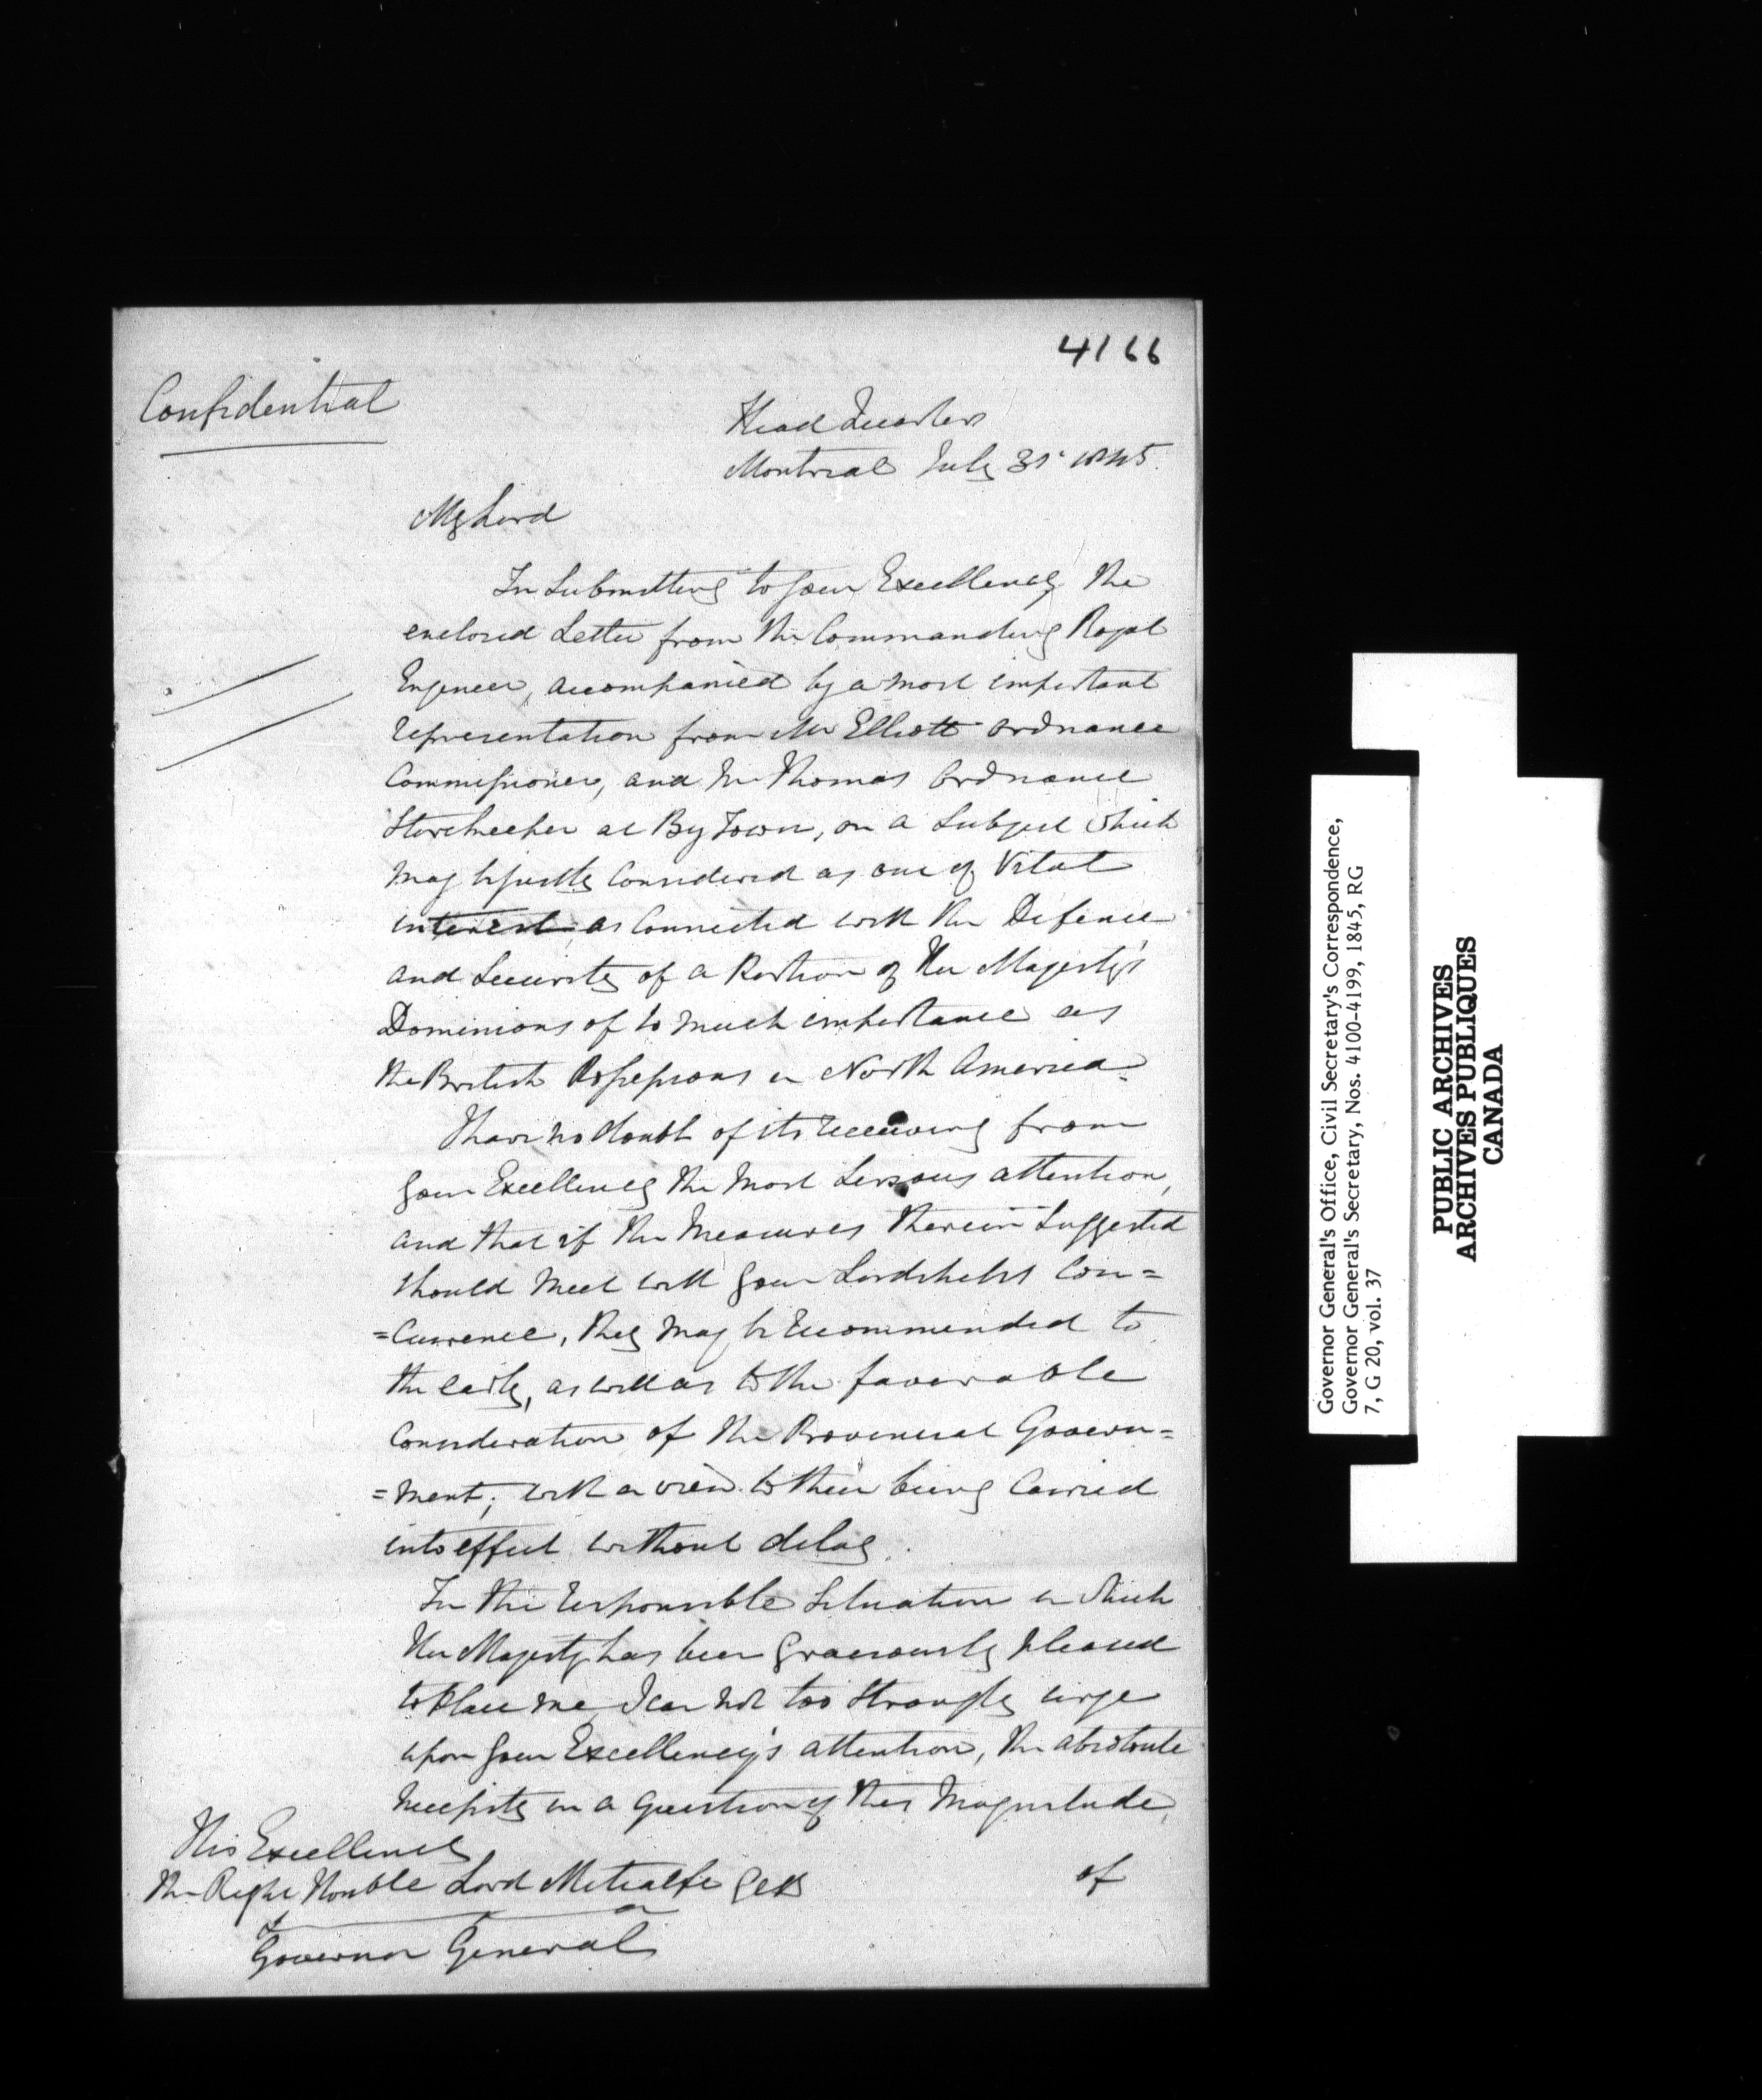 4166
Confidential
Head Quarters
Montreal July 31st 1845.
My Lord
In Submitting to Your Excellency the
enclosed Letter from the Commanding Royal
Engineer, accompanied by a most important
representation from Mr Elliott Ordnance
Commissioner, and Mr Thomas Ordnance
Storekeeper at By Town, on a Subject which
may be justly Considered as one of Vital
interest, as Connected with the Defence
and Security of a Portion of Her Majesty's
Dominions of so much importance as
the British Possessions in North America.
I have no doubt of its receiving from
Your Excellency the most Serious attention,
and that if the Measures therein Suggested
should meet with Your Lordship's Con=
=currence, they may be recommended to
the early, as well as to the favorable
Consideration of the Provincial Govern=
=ment; with a view to their being Carried
into effect without delay.
In the responsible Situation in which
Her Majesty has been Graciously pleased
to place me, I can not too Strongly urge
upon Your Excellency's attention, the absolute
necessity in a Question of this Magnitude,
of
His Excellency
The Right Honble Lord Metcalfe GCB
Governor General
Governor General's Office, Civil Secretary's Correspondence,
Governor General's Secretary, Nos. 4100-4199, 1845, RG
7, G 20, vol. 37
PUBLIC ARCHIVES
ARCHIVES PUBLIQUES
CANADA